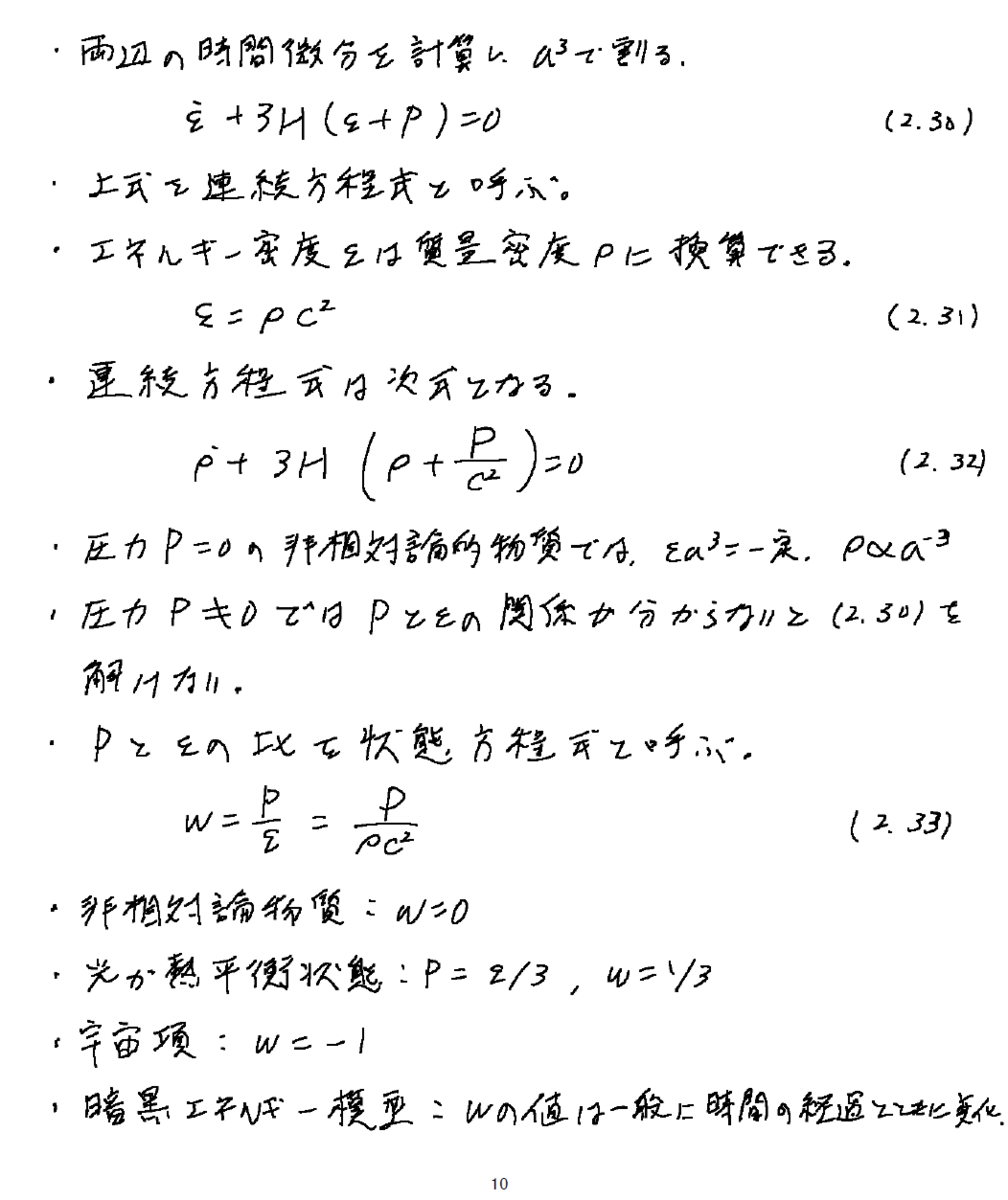 ・両辺の時間微分を計算し、a³で割る.
ε̇ + 3H(ε+P)=0 (2.30)
・上式を連続方程式と呼ぶ。
・エネルギー密度εは質量密度ρに換算できる.
ε = ρc² (2.31)
・連続方程式は次式となる.
ρ̇ + 3H (ρ + P/c²)=0 (2.32)
・圧力P=0の非相対論的物質では, εa³=一定. ρ∝a⁻³
・圧力P≠0ではPとεの関係が分からないと(2.30)を
解けない.
・Pとεの比を状態方程式と呼ぶ.
w = P/ε = P/ρc² (2.33)
・非相対論物質：w=0
・光が熱平衡状態：P = ε/3 , w=1/3
・宇宙項：w=-1
・暗黒エネルギー模型：wの値は一般に時間の経過とともに変化.
10